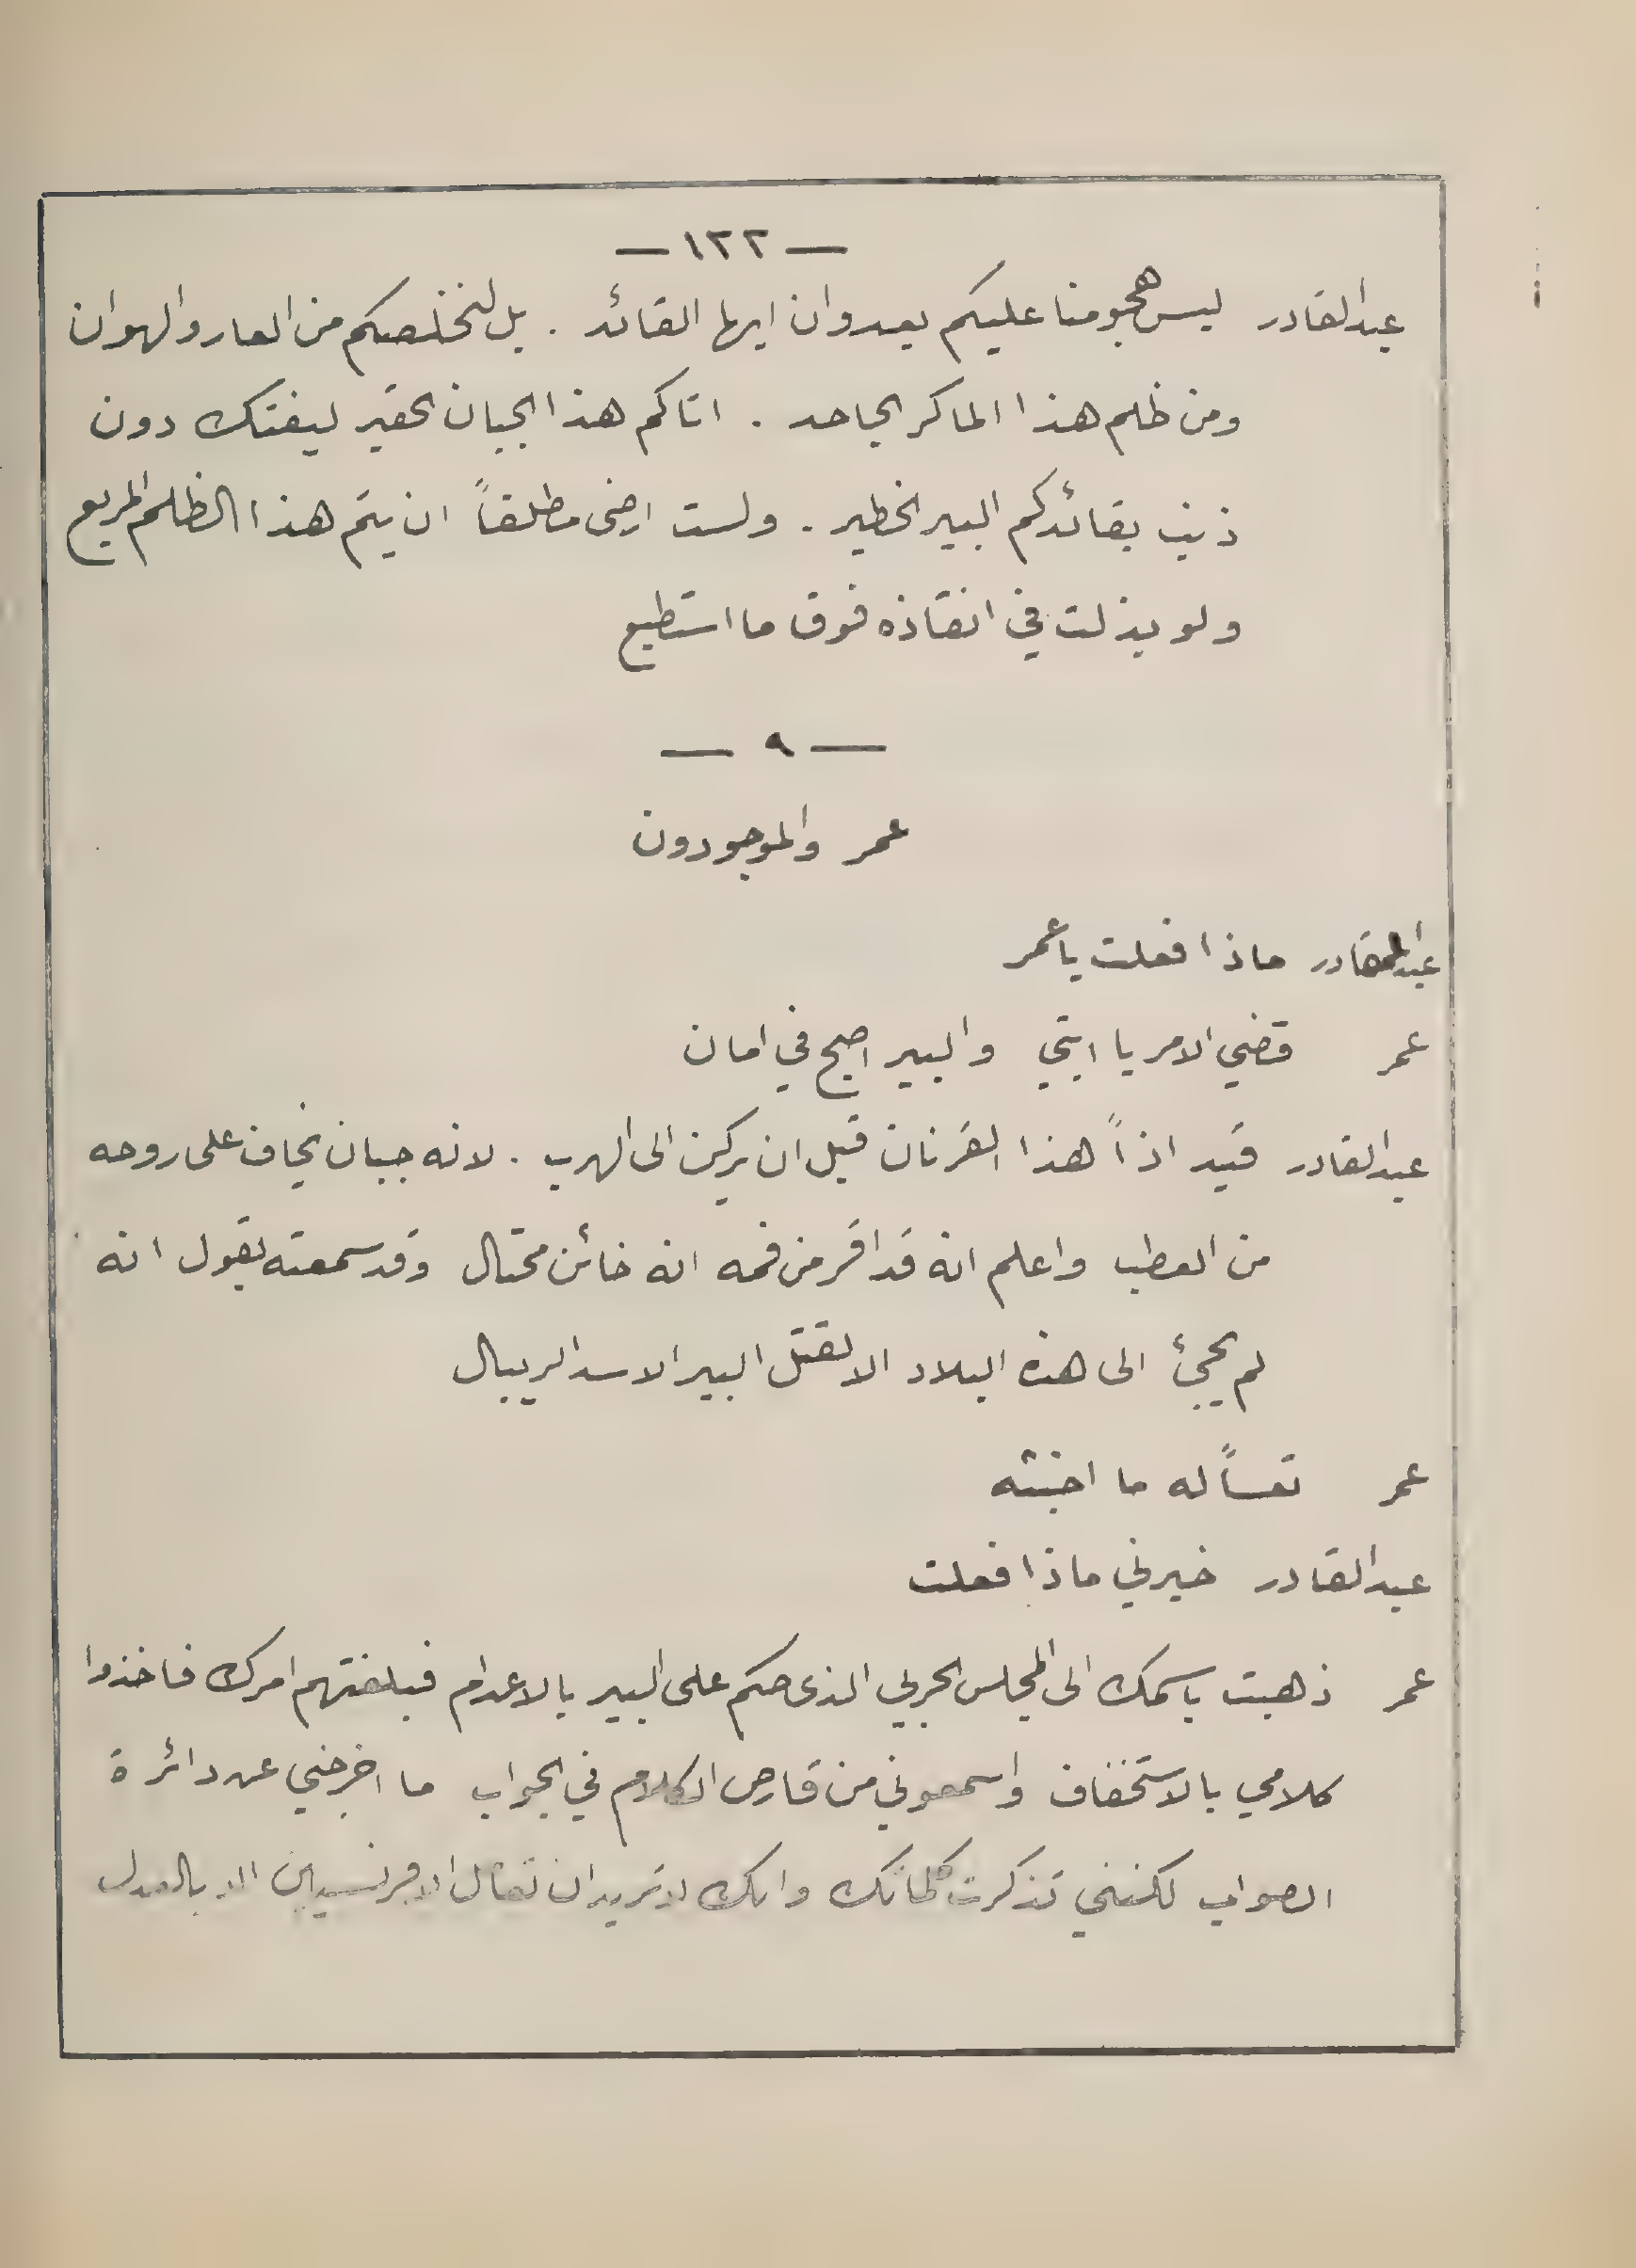 — ١٢٢ —
عبدالقادر ليس هجومنا عليكم بعدوان ايها القائد . بل لنخلصكم من العار والهوان
ومن ظلم هذا الماكر الجاحد . اتاكم هذا الجبان الحقير ليفتك دون
ذنب بقائدكم البير الخطير . ولست ارضى مطلقاً ان يتم هذا الظلم المريع
ولو بذلت في انقاذه فوق ما استطيع
— ٩ —
عمر والموجودون
عبدالقادر ماذا فعلت يا عمر
عمر قضي الامر يا ابتي والبير اصبح في امان
عبدالقادر قيد اذاً هذا القرنان قبل ان يركن الى الهرب . لانه جبان يخاف على روحه
من العطب واعلم انه قد اقر من فمه انه خائن محتال وقد سمعته يقول انه
لم يجيئ الى هذه البلاد الا لقتل البير الاسد الريبال
عمر تعساً له ما اخبثه
عبدالقادر خبرني ماذا فعلت
عمر ذهبت باسمك الى المجلس الحربي الذى حكم على البير بالاعدام فبلغتهم امرك فاخذوا
كلامي بالاستخفاف واسمعوني من قارص الكلام في الجواب ما اخرجني عن دائرة
الصواب لكنني تذكرت كلماتك وانك لا تريد ان تقاتل الافرنسيين الا بالعدل